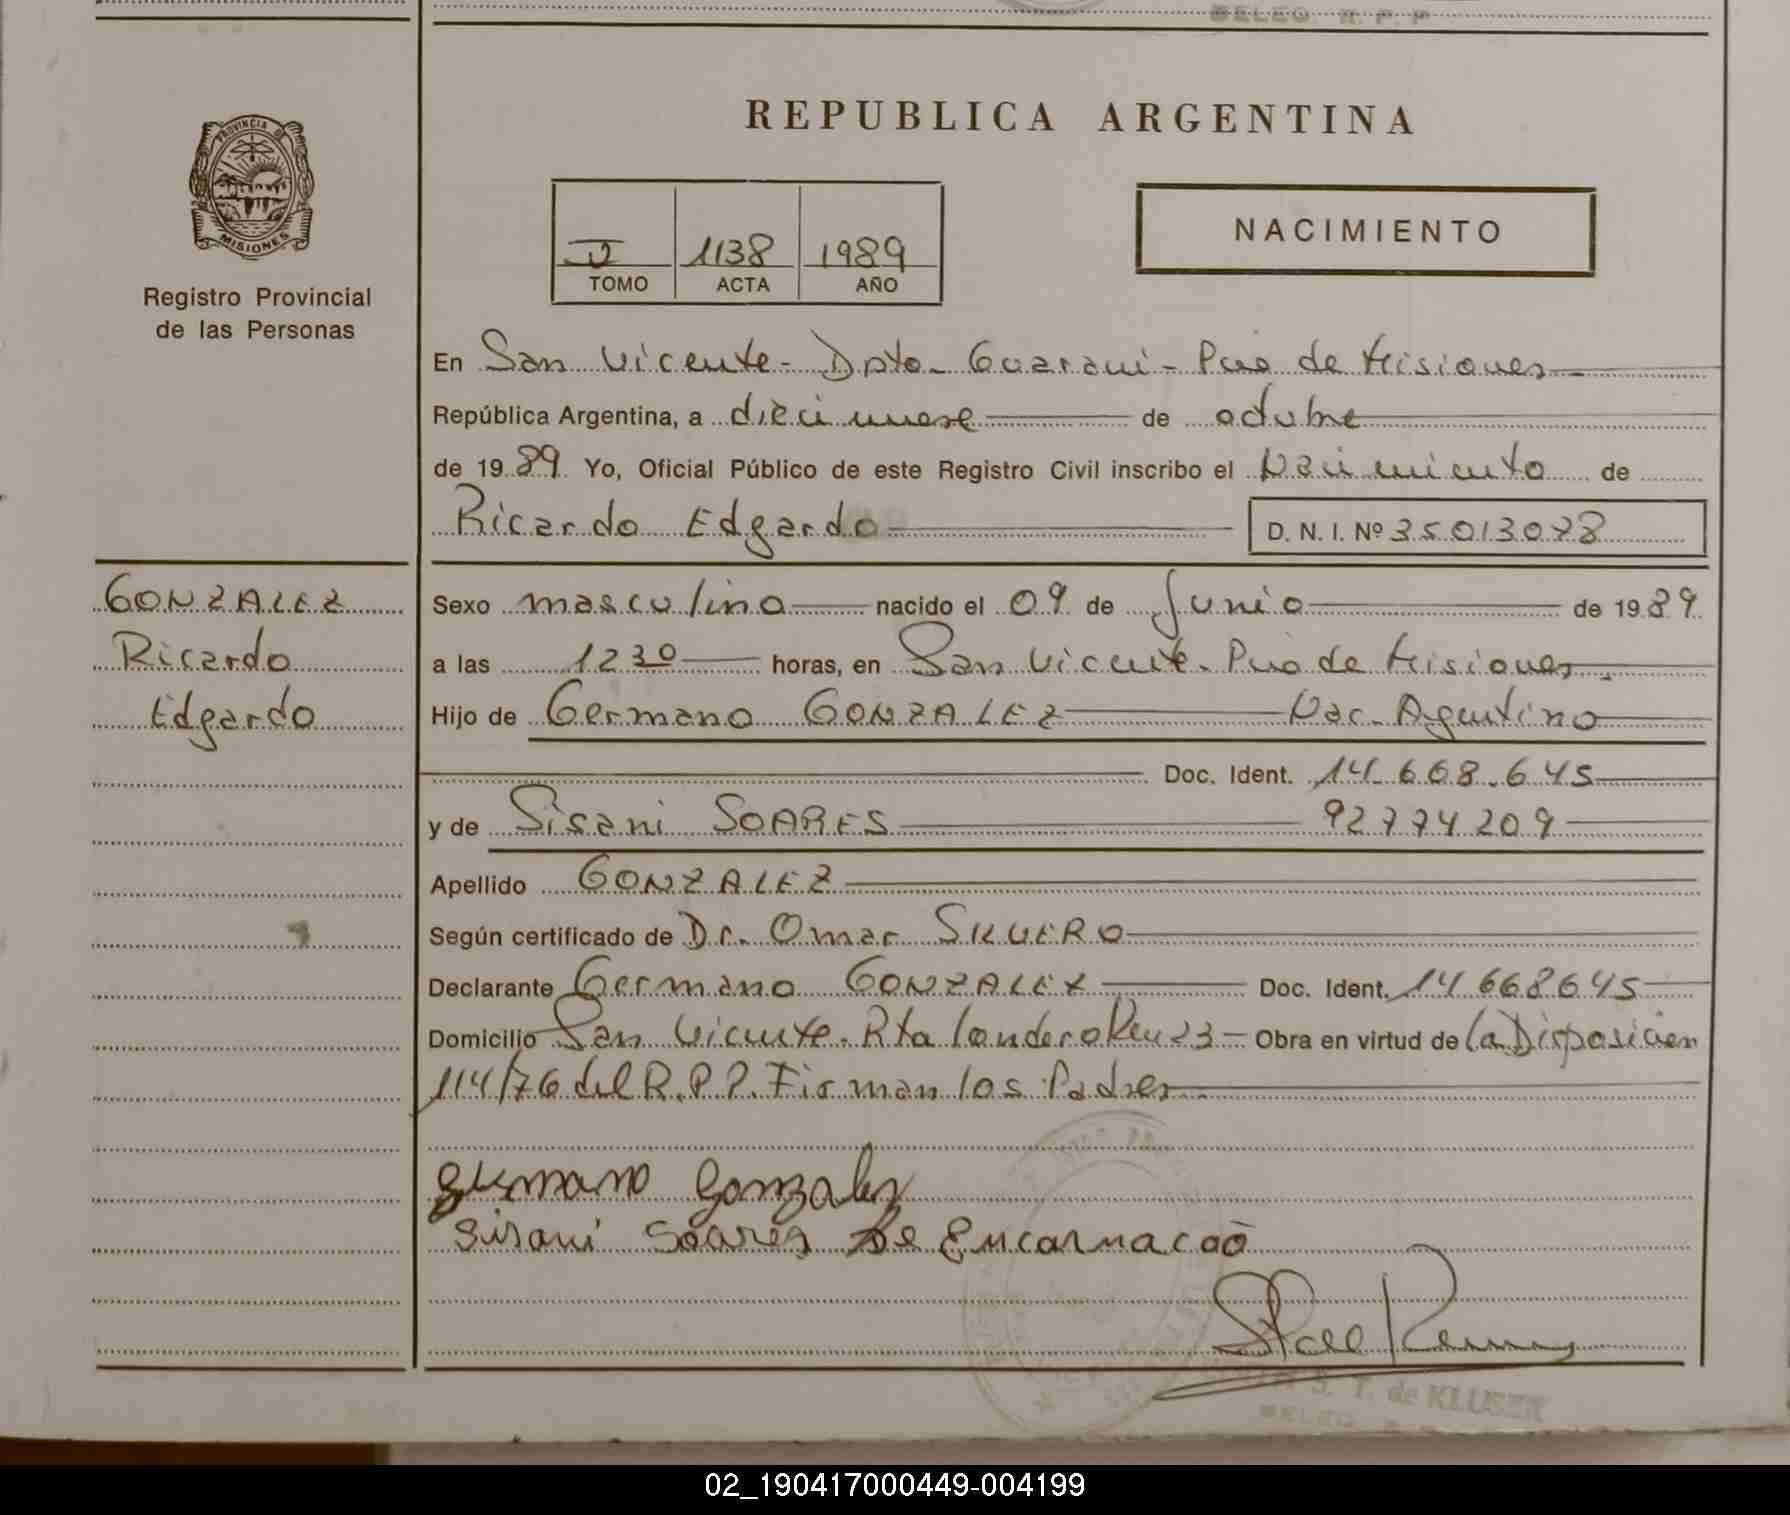 DELEG. R. P. P.
REPUBLICA ARGENTINA
PROVINCIA DE
MISIONES
Registro Provincial
de las Personas
1138 1989
TOMO ACTA AÑO
NACIMIENTO
En San Vicente - Dpto. Guarani - Pcia de Misiones
República Argentina, a diecinueve de octubre
de 1989 Yo, Oficial Público de este Registro Civil inscribo el Nacimiento de
Ricardo Edgardo D. N. I. Nº 35013078
GONZALEZ
Ricardo
Edgardo
Sexo masculino nacido el 09 de Junio de 1989
a las 12 30 horas, en San Vicente. Pcia de Misiones
Hijo de Germano GONZALEZ Nac. Agentino
Doc. Ident. 14.668.645
y de Sisani SOARES 92774209
Apellido GONZALEZ
Según certificado de Dr. Omar SILVERO
Declarante Germano GONZALEZ Doc. Ident. 14668645
Domicilio San Vicente. Rta Obra en virtud de la Disposicion
114/76 del R.P.P. Firman los Padres
germano Gonzalez
Sisani Soares De Encarnacaõ
S. T. de KLUSER
02_190417000449-004199